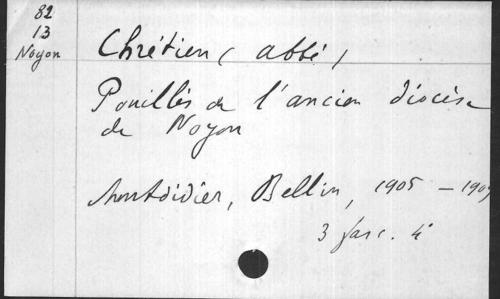 82
13
Noyon
Chrétien (abbé)
Pouillés de l'ancien diocèse
de Noyon
Montdidier, Bellin, 1905 - 1907
3 fasc. 4°